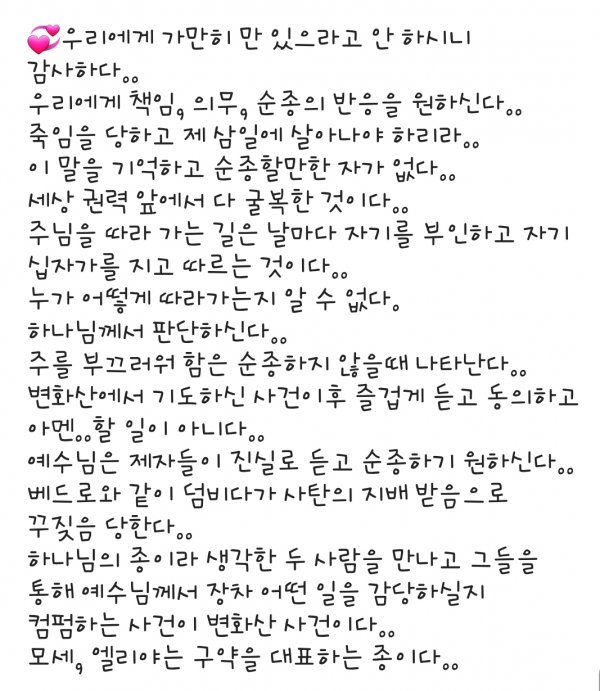 💞우리에게 가만히 만 있으라고 안 하시니
감사하다。。
우리에게 책임, 의무, 순종의 반응을 원하신다。。
죽임을 당하고 제 삼일에 살아나야 하리라。。
이 말을 기억하고 순종할만한 자가 없다。。
세상 권력 앞에서 다 굴복한 것이다。。
주님을 따라 가는 길은 날마다 자기를 부인하고 자기
십자가를 지고 따르는 것이다。。
누가 어떻게 따라가는지 알 수 없다。
하나님께서 판단하신다。。
주를 부끄러워 함은 순종하지 않을때 나타난다。。
변화산에서 기도하신 사건이후 즐겁게 듣고 동의하고
아멘。。할 일이 아니다。。
예수님은 제자들이 진실로 듣고 순종하기 원하신다。。
베드로와 같이 덤비다가 사탄의 지배 받음으로
꾸짖음 당한다。。
하나님의 종이라 생각한 두 사람을 만나고 그들을
통해 예수님께서 장차 어떤 일을 감당하실지
컴펌하는 사건이 변화산 사건이다。。
모세, 엘리야는 구약을 대표하는 종이다。。